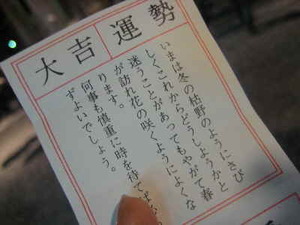 大吉運勢
いまは冬の枯野のようにさび
しくこれからどうしようかと
迷うことがあってもやがて春
が訪れ花の咲くようによくな
ります。
何事も慎重に時を待てば
ずよいでしょう。